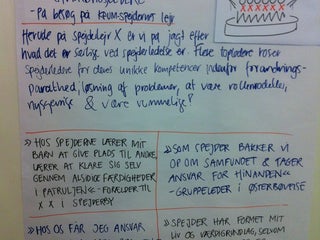 - På besøg på KFUM-spejdernes lejr
Herude på spejderlejr X er vi på jagt efter
hvad det er særlige ved spejderledelse er. Flere topledere roser
spejderledere for deres unikke kompetencer indenfor forandrings-
parathed, løsning af problemer, at være rollemodeller,
nysgerrige & være rummelige!
» HOS SPEJDERNE LÆRER MIT
BARN AT GIVE PLADS TIL ANDRE,
LÆRER AT KLARE SIG SELV
GENNEM ALSIDIGE FÆRDIGHEDER
I PATRULJEN« - FORÆLDER TIL
X X I SPEJDERBY
» SOM SPEJDER BAKKER VI
OP OM SAMFUNDET & TAGER
ANSVAR FOR HINANDEN«
- GRUPPELEDER I
» HOS OS FÅR JEG ANSVAR
» SPEJDER HAR FORMET MIT
LIV OG VÆRDIGRUNDLAG, SELVOM